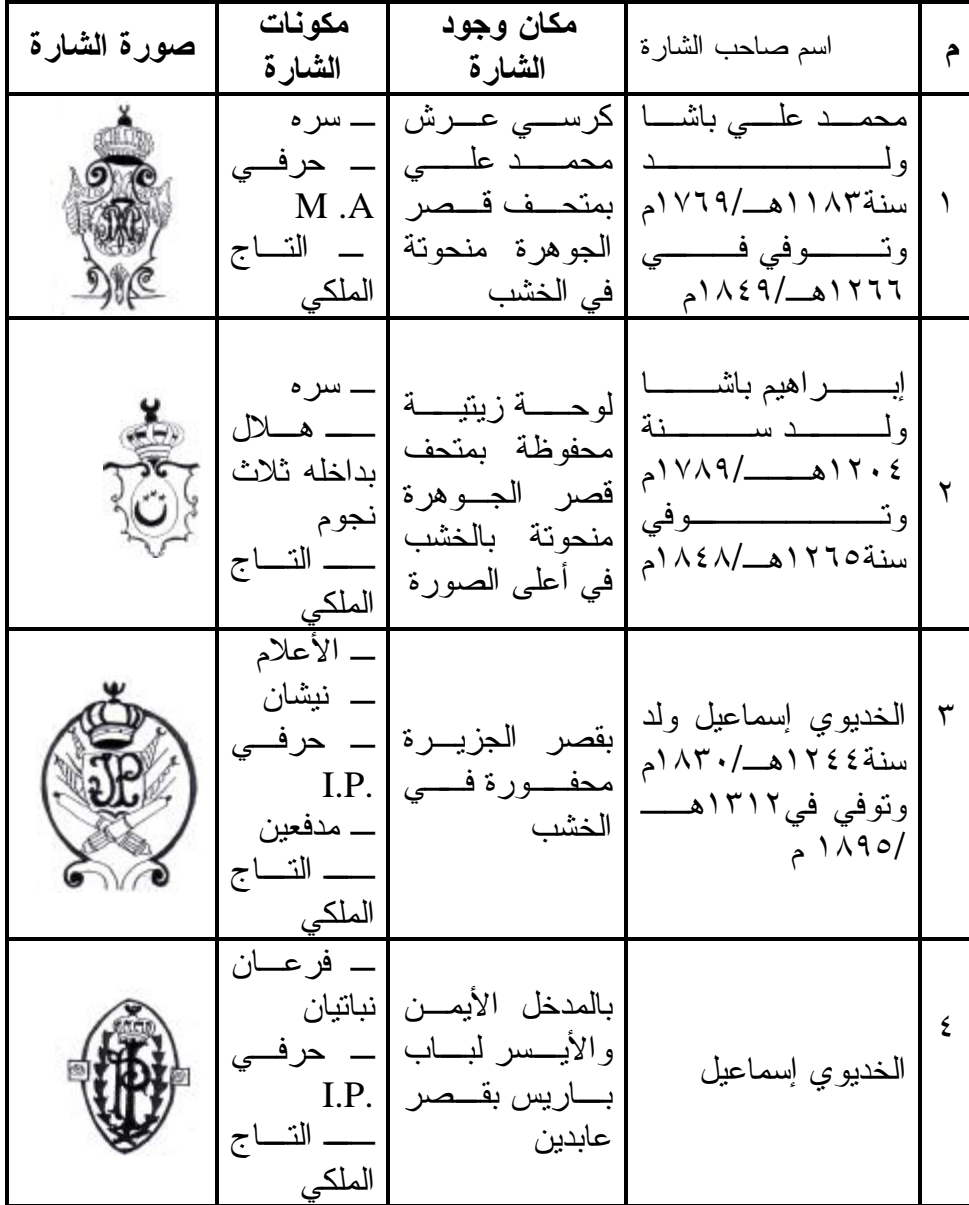 م
اسم صاحب الشارة
مكان وجود
الشارة
مكونات
الشارة
صورة الشارة
١
محمد علي باشا
ولد
سنة١١٨٣هـ/١٧٦٩م
وتوفي في
١٢٦٦هـ/١٨٤٩م
كرسي عرش
محمد علي
بمتحف قصر
الجوهرة منحوتة
في الخشب
ـ سره
ـ حرفي
M .A
ـ التاج
الملكي
٢
إبراهيم باشا
ولد سنة
١٢٠٤هـ/١٧٨٩م
وتوفي
سنة١٢٦٥هـ/١٨٤٨م
لوحة زيتية
محفوظة بمتحف
قصر الجوهرة
منحوتة بالخشب
في أعلى الصورة
ـ سره
ـ هلال
بداخله ثلاث
نجوم
ـ التاج
الملكي
٣
الخديوي إسماعيل ولد
سنة١٢٤٤هـ/١٨٣٠م
وتوفي في١٣١٢هـ
/١٨٩٥ م
بقصر الجزيرة
محفورة في
الخشب
ـ الأعلام
ـ نيشان
ـ حرفي
I.P.
ـ مدفعين
ـ التاج
الملكي
٤
الخديوي إسماعيل
بالمدخل الأيمن
والأيسر لباب
باريس بقصر
عابدين
ـ فرعان
نباتيان
ـ حرفي
I.P.
ـ التاج
الملكي